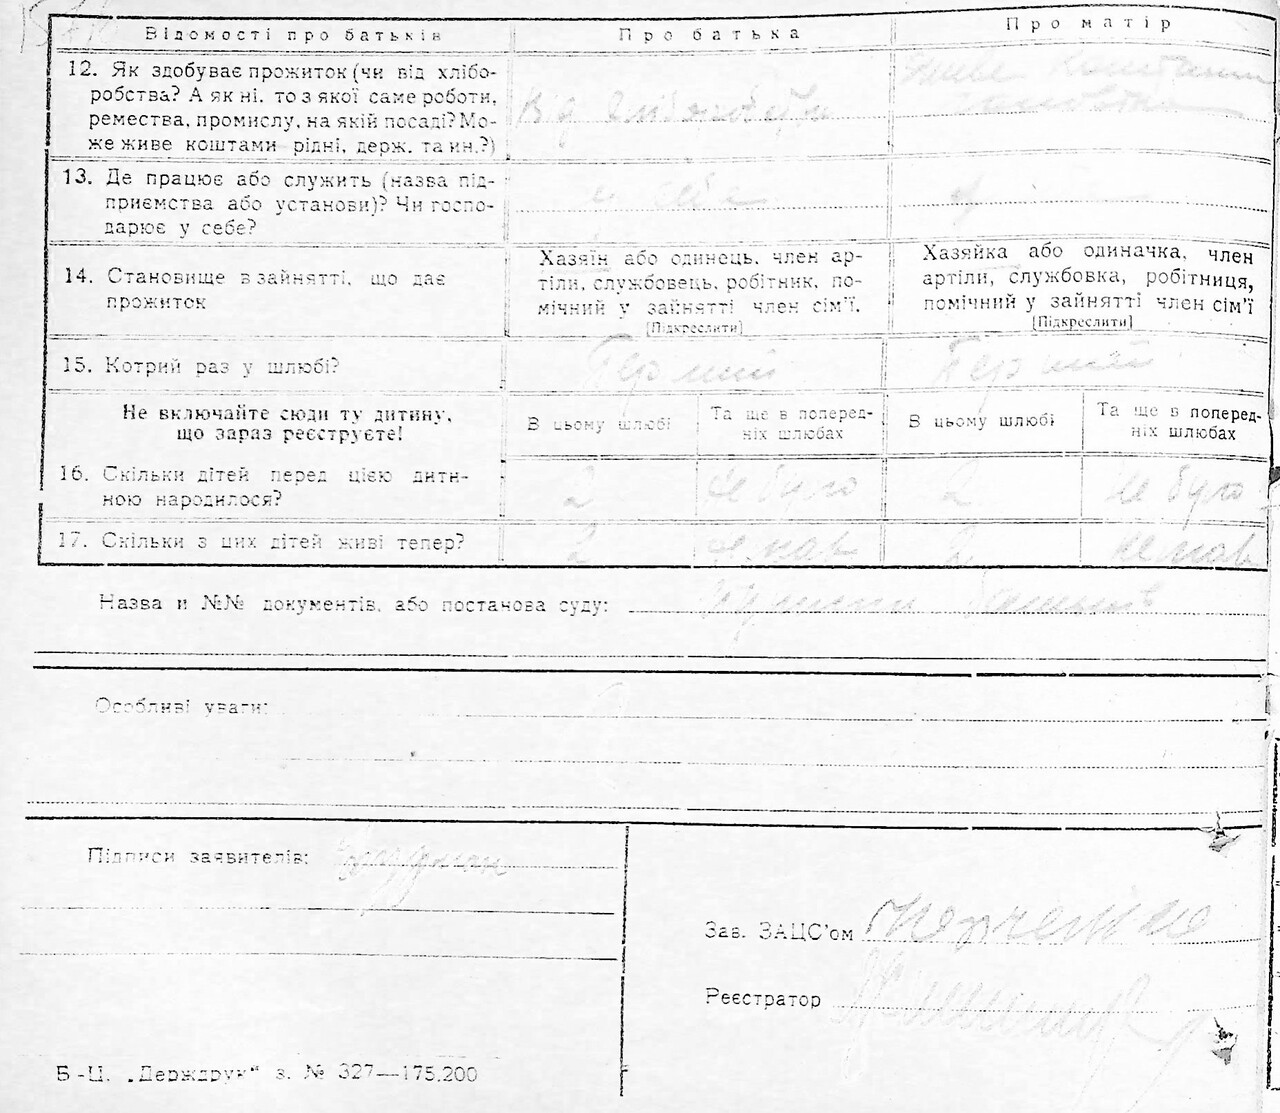 Відомості про батьків
Про батька
Про матір
12. Як здобуває прожиток (чи від хлібо-
робства? А як ні, то з якої саме роботи,
ремества, промислу, на якій посаді? Мо-
же живе коштами рідні, держ. та ин.?)
Від хліборобства
живе коштами
чоловіка
13. Де працює або служить (назва під-
приємства або установи)? Чи госпо-
дарює у себе?
у себе
14. Становище в зайнятті, що дає
прожиток
Хазяїн або одинець, член ар-
тіли, службовець, робітник, по-
мічний у зайнятті член сім'ї.
[Підкреслити]
Хазяйка або одиначка, член
артіли, службовка, робітниця,
помічний у зайнятті член сім'ї
[Підкреслити]
15. Котрий раз у шлюбі?
Перший
Перший
Не включайте сюди ту дитину,
що зараз реєструєте!
В цьому шлюбі
Та ще в поперед-
ніх шлюбах
В цьому шлюбі
Та ще в поперед-
ніх шлюбах
16. Скільки дітей перед цією дити-
ною народилося?
2
не було
2
не було
17. Скільки з цих дітей живі тепер?
2
немає
2
немає
Назва и №№ документів, або постанова суду:
Особливі уваги:
Підписи заявителів:
Зав. ЗАЦС'ом
Реєстратор
Б-Ц. „Держдрук" з. № 327—175.200